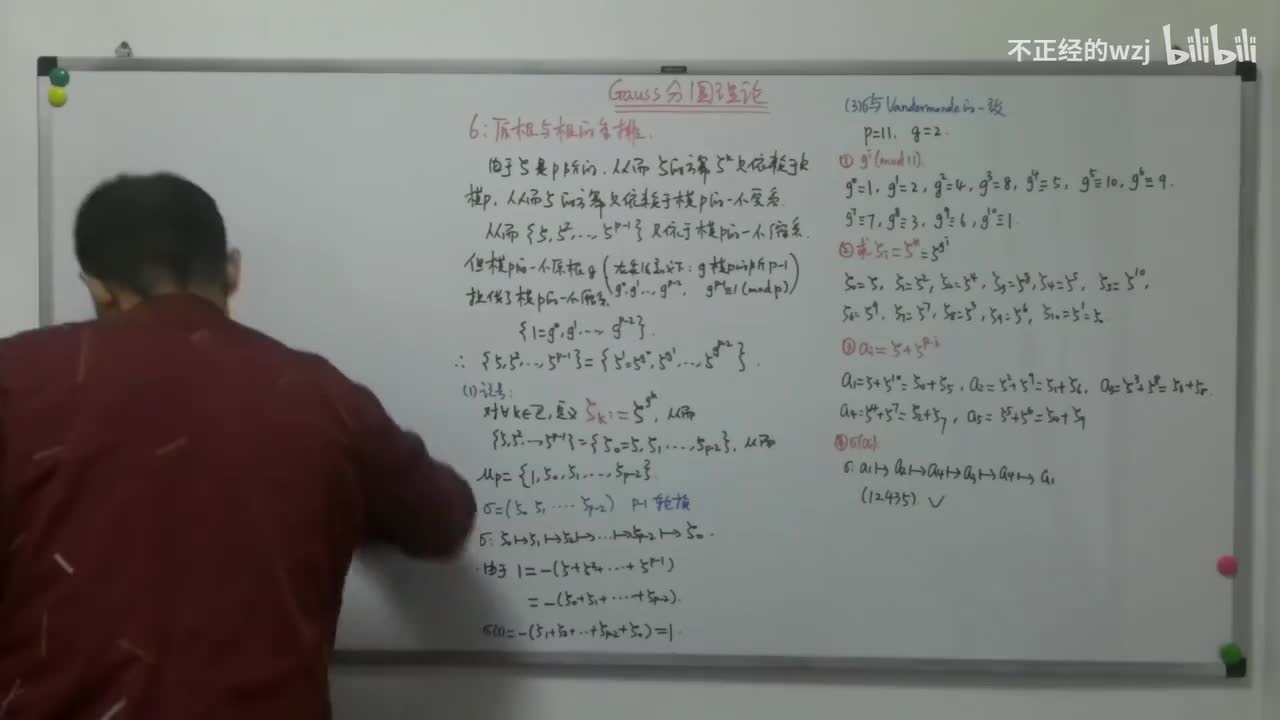 不正经的wzj bilibili
Gauss分圆理论
6:原根与根的重排.
由于ζ是p阶的,从而ζ的方幂ζ^k只依赖于k
模p,从而ζ的方幂只依赖于模p的一个完系.
从而{ζ,ζ²,...,ζ^{p-1}}只依于模p的一个缩系.
但模p的一个原根g(在类似意义下:g模p的阶p-1)
提供了模p的一个缩系(g⁰,g¹,...,g^{p-2}, g^{p-1}≡1(mod p))
{1=g⁰,g¹,...,g^{p-2}}.
∴{ζ,ζ²,...,ζ^{p-1}}={ζ¹=ζ^{g⁰},ζ^{g¹},...,ζ^{g^{p-2}}}.
(1)记号:
对∀k∈Z,定义ζ_k:=ζ^{g^k},从而
{ζ,ζ²,...,ζ^{p-1}}={ζ₀=ζ,ζ₁,...,ζ_{p-2}},从而
μ_p={1,ζ₀,ζ₁,...,ζ_{p-2}}.
σ=(ζ₀ ζ₁ ... ζ_{p-2}) p-1轮换
σ:ζ₀↦ζ₁↦ζ₂↦...↦ζ_{p-2}↦ζ₀.
由于 1=-(ζ+ζ²+...+ζ^{p-1})
=-(ζ₀+ζ₁+...+ζ_{p-2}).
σ(1)=-(ζ₁+ζ₂+...+ζ_{p-2}+ζ₀)=1.
(3)σ与Vandermonde的一致
p=11, g=2.
① g^i(mod 11)
g⁰=1, g¹=2, g²=4, g³=8, g⁴≡5, g⁵≡10, g⁶≡9.
g⁷≡7, g⁸≡3, g⁹≡6, g¹⁰≡1.
ζ₀=ζ, ζ₁=ζ², ζ₂=ζ⁴, ζ₃=ζ⁸, ζ₄=ζ⁵, ζ₅=ζ¹⁰,
ζ₆=ζ⁹, ζ₇=ζ⁷, ζ₈=ζ³, ζ₉=ζ⁶, ζ₁₀=ζ¹=ζ₀
a₁=ζ+ζ¹⁰=ζ₀+ζ₅, a₂=ζ²+ζ⁹=ζ₁+ζ₆, a₃=ζ³+ζ⁸=ζ₃+ζ₈.
a₄=ζ⁴+ζ⁷=ζ₂+ζ₇, a₅=ζ⁵+ζ⁶=ζ₄+ζ₉
(12435) ✓